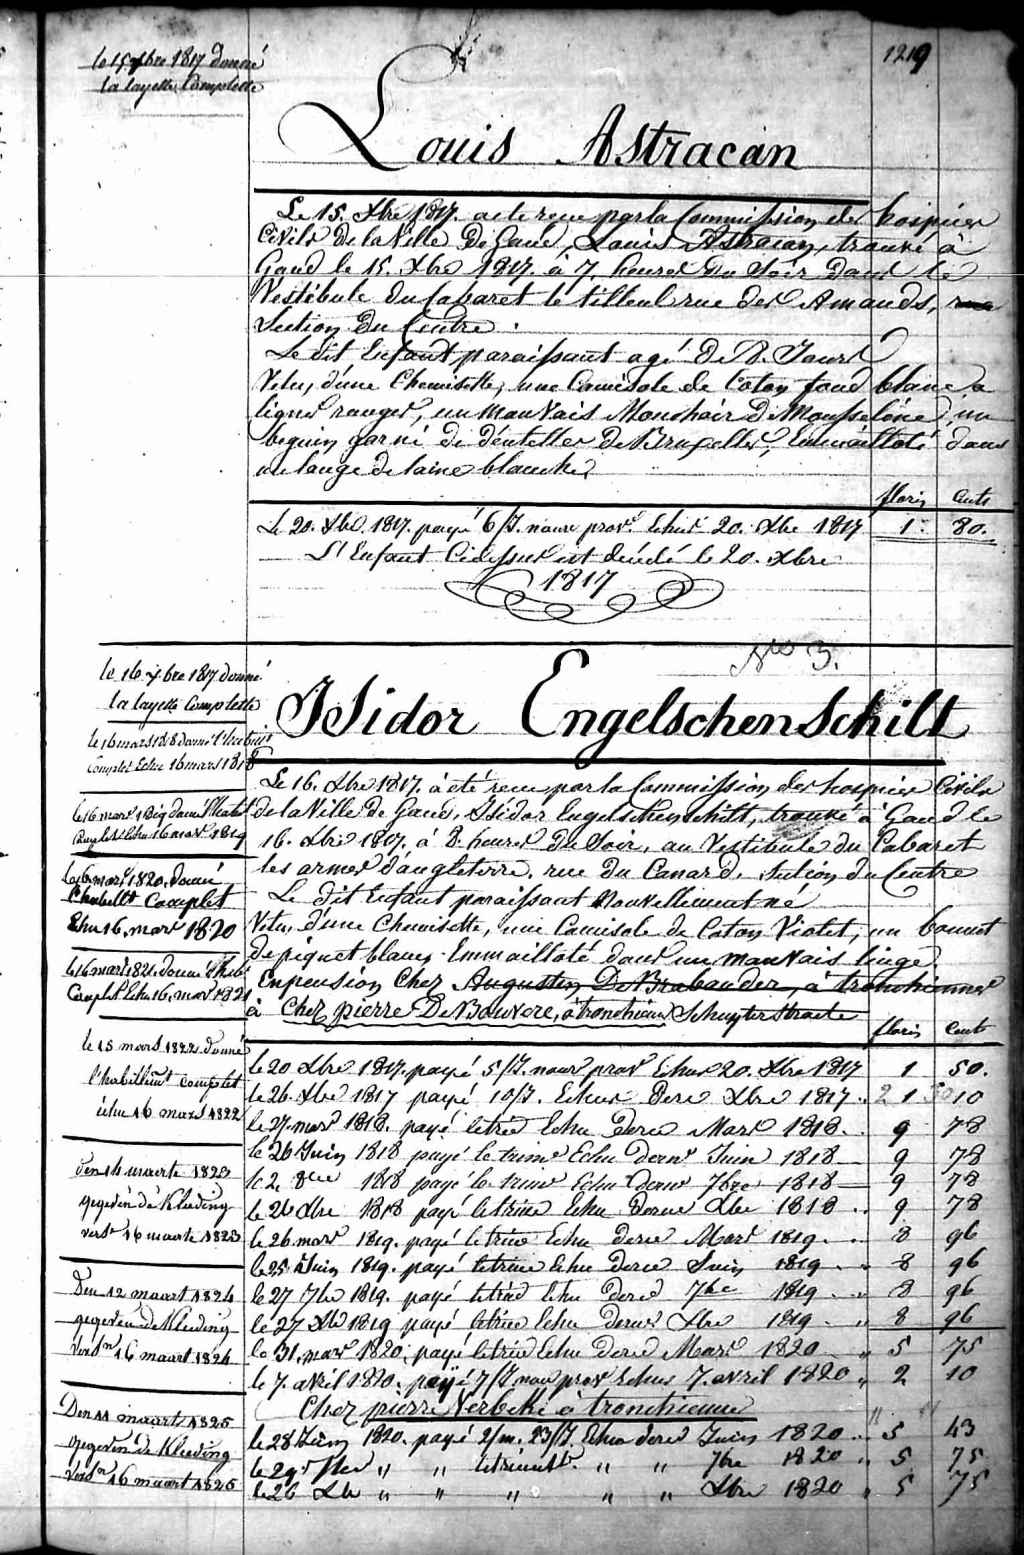 1219
le 15 xbre 1817 donné
la layette Complette
Louis Astracan
Le 15. Xbre 1817. a ete recu par la Commission des hospices
Civils de la Ville De Gand, Louis Astracan, trouvé à
Gand le 15. Xbre 1817. à 7. heures du Soir Dans le
Vestibule du Cabaret le tilleul rue des Amands,
Section du Centre.
Le dit Enfant paraissant agé De 8. Jours
Vetu, d'une Chemisette, une Camisole de Coton fond blanc a
lignes rouges, un mauvais Mouchoir De Mousseline, un
beguin garni de dentelles De Bruxelles, Emmailloté dans
un lange de laine blanche,
florin Cents
Le 20. Xbre 1817. payé 6/J. nour provt Echus 20. Xbre 1817 1. 80.
L'Enfant Cidessus est décédé le 20. Xbre
1817
No 3.
le 16 xbre 1817 donné
la layette Complette
Isidor Engelschenschilt
le 16 mars 1818 donné
Complet Echu 16 mars 1818
le 16 mars 1819 donné
Complet Echu 16 mars 1819
le 16 mars 1820. donné
Complet
Echu 16, mars 1820
le 16 mars 1821. donné
Complet Echu 16, mars 1821
le 15 mars 1822 donné
l'habillemt complet
échu 16 mars 1822
den 14 maerte 1823
gegeven de Kleeding
versn 16 maerte 1823
Den 12 maart 1824
gegeven de Kleeding
versn 16 maart 1824
Den 11 maart 1825
gegeven de Kleeding
versn 16 maart 1825
Le 16. Xbre 1817. à eté recu par la Commission des hospices Civils
de la Ville de Gand, Isidor Engelschenschilt, trouvé à Gand le
16. Xbre 1817. à 8. heures du Soir, au Vestibule du Cabaret
les armes d'angleterre, rue du Canard, Section du Centre
Le dit Enfant paraissant Nouvellement né
Vetu, d'une Chemisette, une Camisole de Coton Violet, un bonnet
de piquet blanc. Emmailloté dans un mauvais linge.
En pension Chez Augustin De Brabander, à tronchiennes
à Chez pierre De Bauvere, à tronchiens Schuyterstraete
florin Cent
le 20 Xbre 1817. payé 5/J. nour provt Echus 20. Xbre 1817 1 50.
le 26. Xbre 1817 payé 10/J. Echus Dere Xbre 1817 .. 1 10
le 27. mars 1818. payé letrie Echu Dere Mars 1818. 9 78
le 26 Juin 1818 payé le trime Echu dernr Juin 1818 9 78
le 2, 8bre 1818 payé le trime Echu dernr 7bre 1818 9 78
le 26 Xbre 1818 payé letrime Echu Derne Xbre 1818 .. 9 78
le 26 mars 1819. payé letrime Echu dere Mars 1819. 8 96
le 25 Juin 1819. payé letrime Echu dere Juin 1819 8 96
le 27 7bre 1819. payé letrime Echu dere 7bre 1819 8 96
le 27 Xbre 1819 payé letrime Echu dernr Xbre 1819 8 96
le 31, mars 1820, payé letrime Echu dere Mars 1820 5 75
le 7. avril 1820. payé 7/J. nour provt Echus 7. avril 1820 2 10
Chez pierre Verbeke à tronchienne
le 28 Juin 1820. payé 2/m. 23/J. Echu dere Juin 1820 5 43
le 29 7bre " " letrimestr. " " 7bre 1820 " 5 75
le 26 Xbre " " " " " Xbre 1820 " 5 75